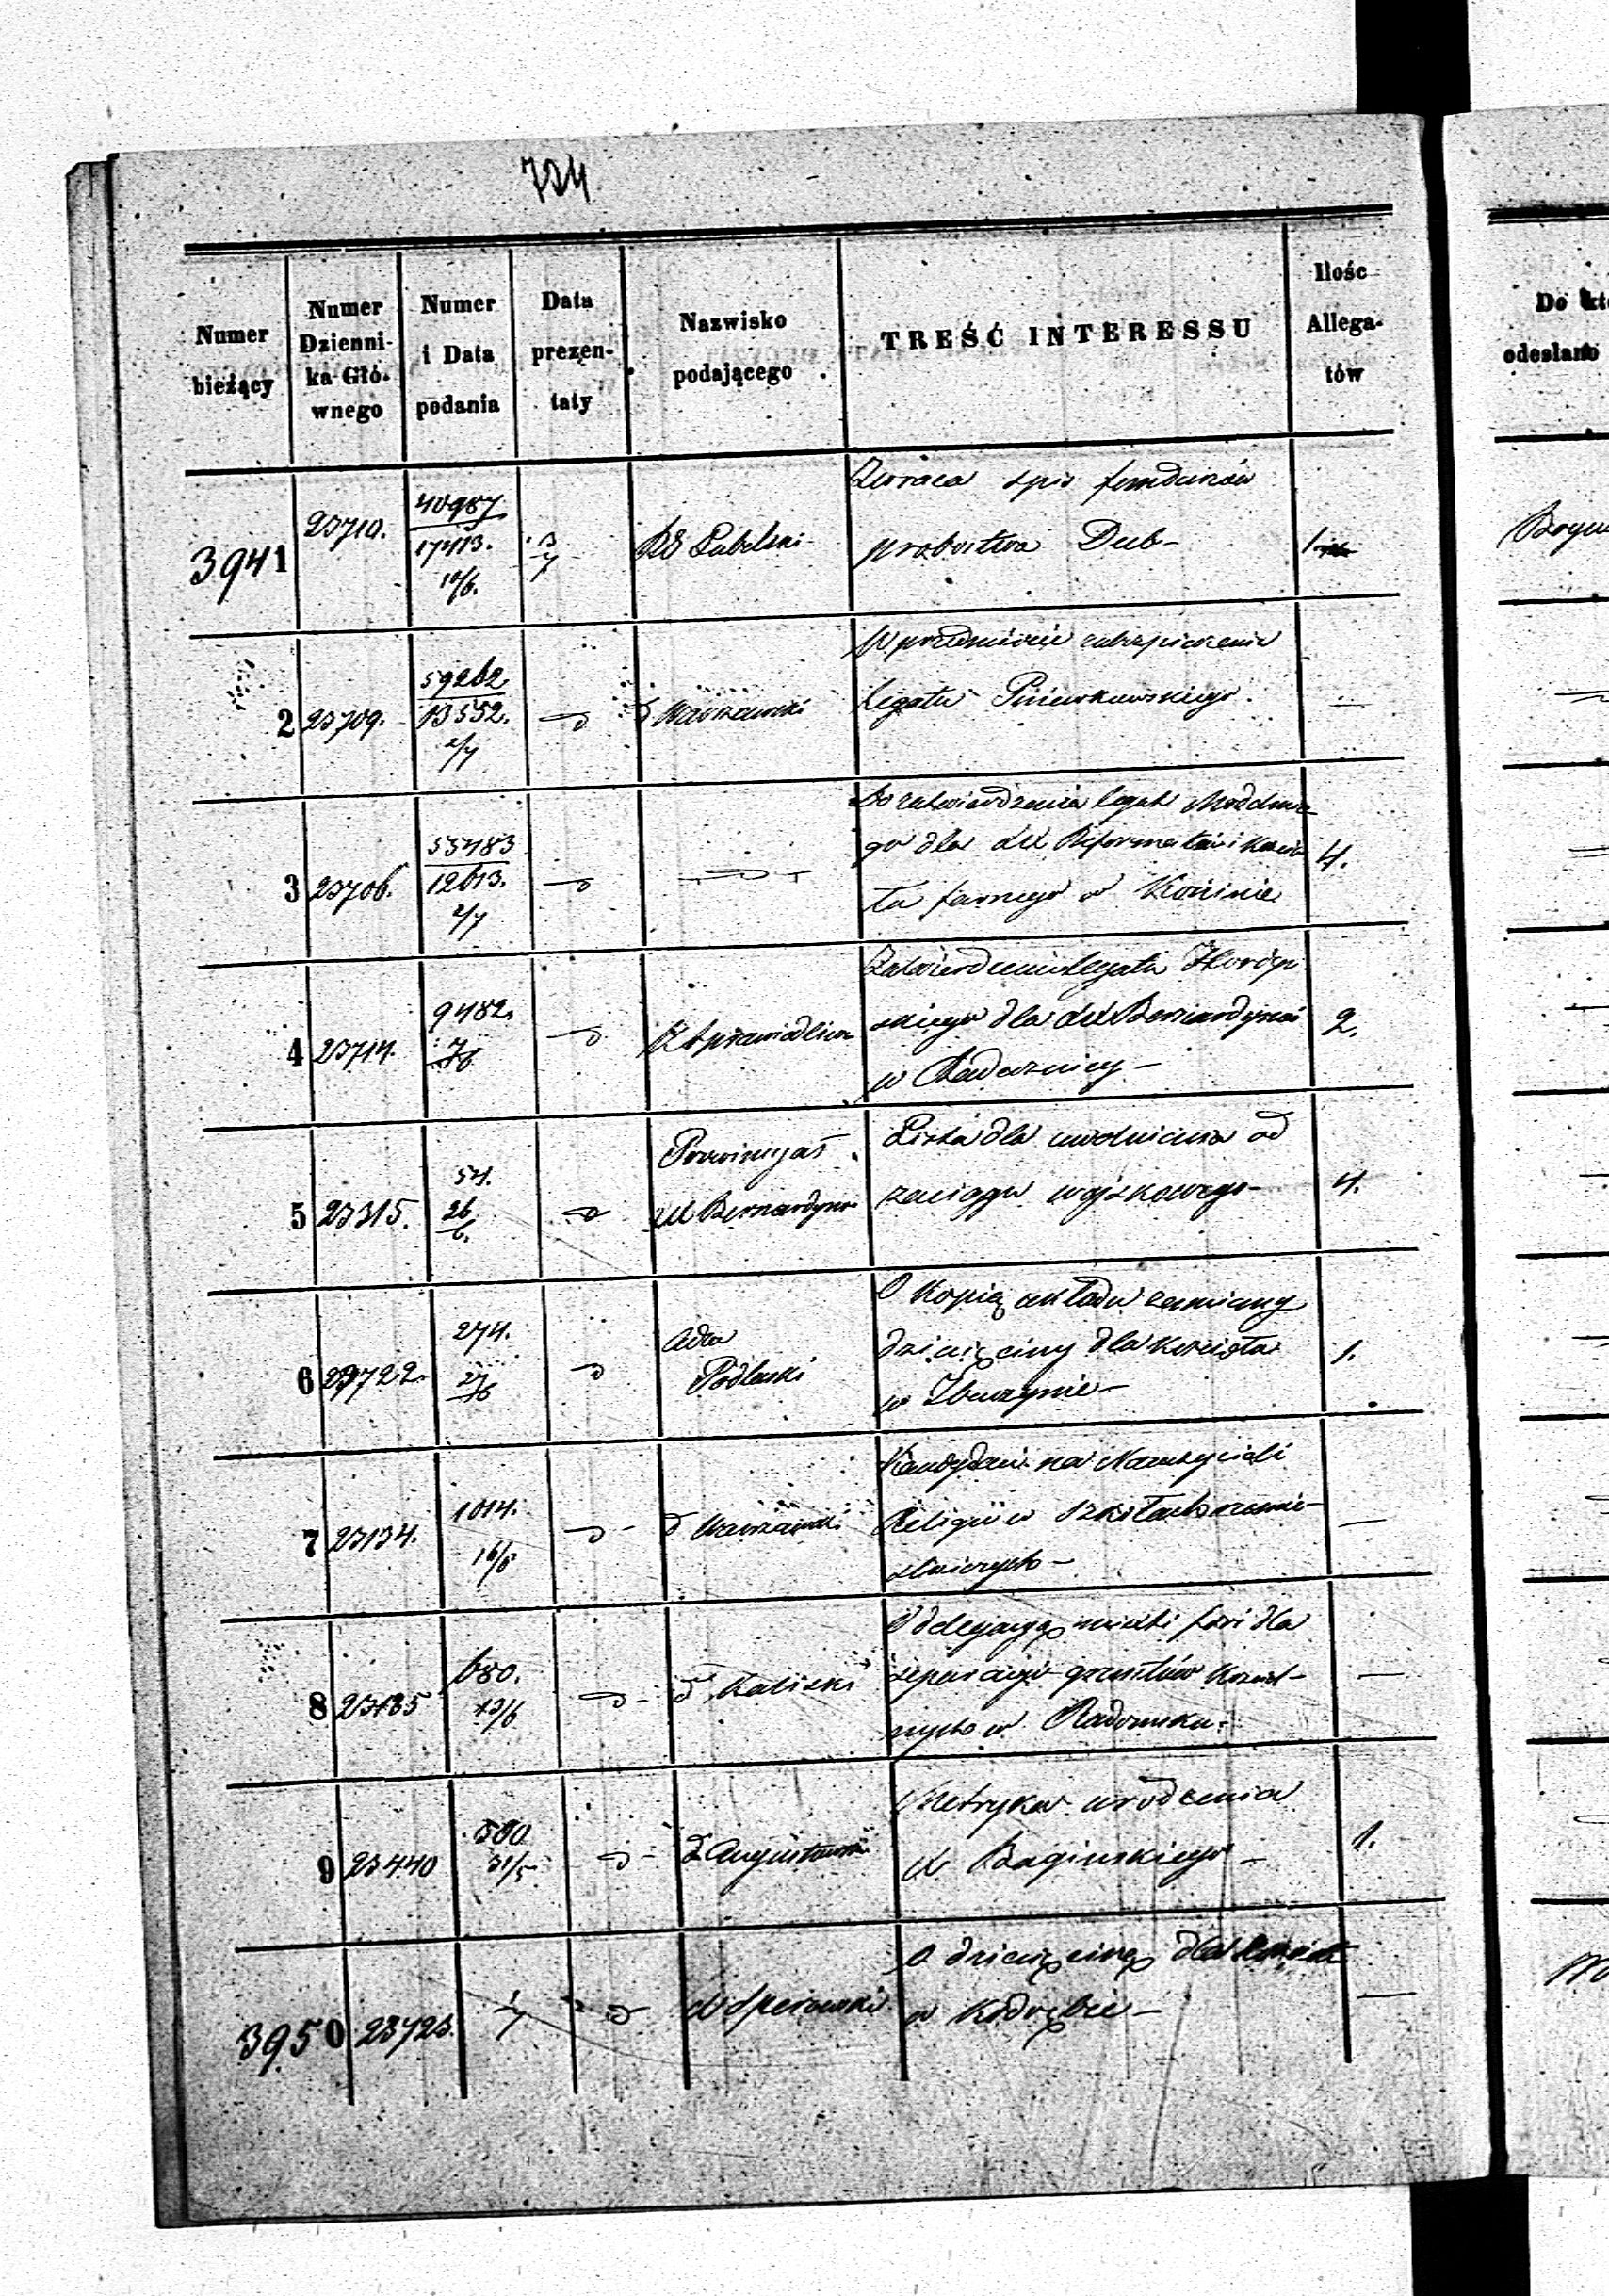 724
Numer
bieżący
Numer
Dzienni-
ka Głó-
wnego
Numer
i Data
podania
Data
prezen-
taty
Nazwisko
podającego
TREŚĆ INTERESSU
Ilość
Allega-
tów
Do
odesłano
3941
23710.
40987
17413.
3/7
RG Lubelski
Zwraca spis funduszów
probostwa Dub-
1
2
23709.
59262
13552.
2/7
D Warszawski
W przedmiocie zabezpieczenia
legatu
3
23706.
55483
12613.
2/7
Do zatwierdzenia legat
go dla XX Reformatów i Kościo
ła farnego w Koninie
4.
4
23714.
9482.
7/6
K Sprawiedliwo
Zatwierdzenie legatu
skiego dla XX Bernardynów
w Radecznicy -
2.
5
23315.
54.
26
6.
Prowincyał
XX Bernardynów
Lista dla uwolnienia od
zaciągu wojskowego -
4.
6
23722.
274.
27/6
Adm
Podlaski
O kopię układu zamiany
dziesięciny dla Kościoła
w Zbuczynie -
1.
7
23134.
1014.
16/6
D Warszawski
Kandydaci na Nauczycieli
Religii w szkołach rzemie-
ślniczych -
8
23185
680.
13/6
D Kaliski
O delegacyą
separacyi gruntów Kościel-
nych w Radomsku.
9
23440
500
31/5
D Augustowski
Metryka urodzenia
X Bagińskiego -
1.
3950
23723.
1/7
X
O dziesięcinę dla
w Kodrębie -